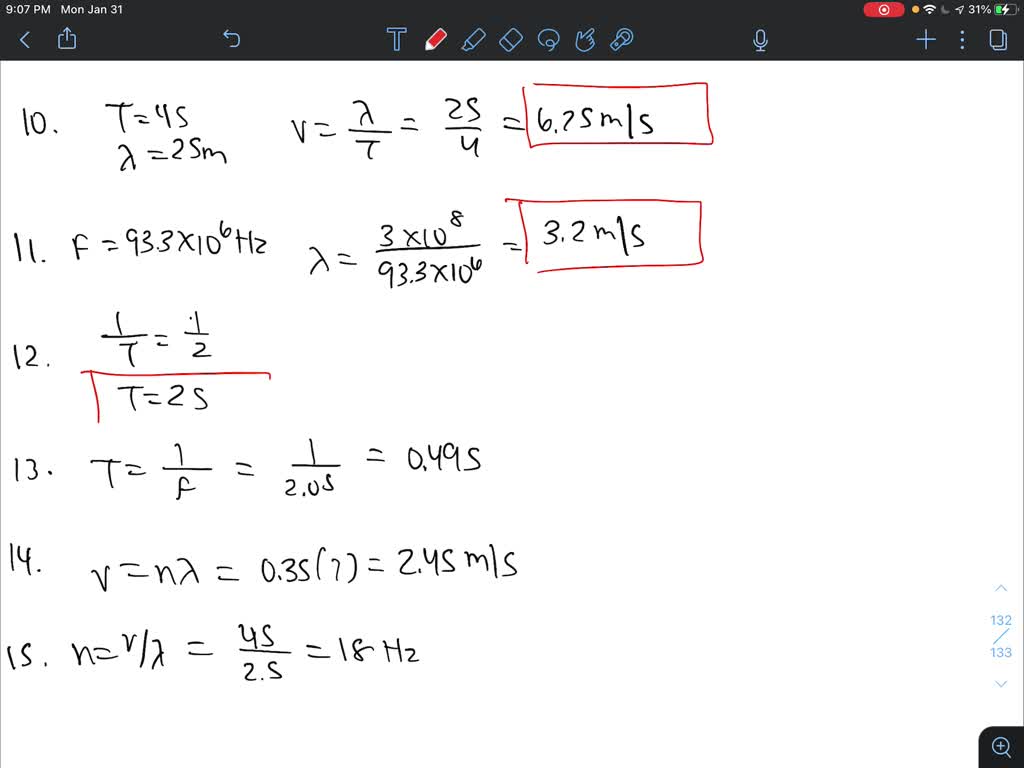 9:07 PM Mon Jan 31 31%
10. T=4s
λ=25m
v = λ/T = 25/4 = 6.25m/s
11. F=93.3×10⁶Hz λ = 3×10⁸/93.3×10⁶ = 3.2m/s
12. 1/T = 1/2
T=2s
13. T = 1/f = 1/2.05 = 0.49s
14. v=nλ = 0.35(7) = 2.45m/s
15. n=v/λ = 45/2.5 = 18 Hz
132
133